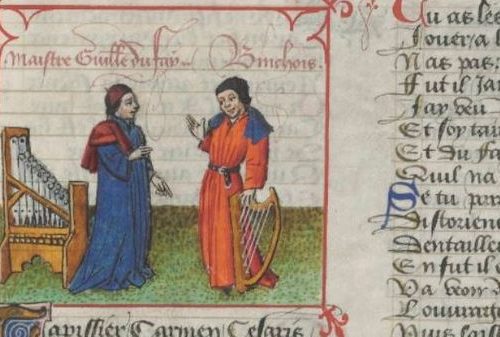 Maistre Guille du fay Binchois.
Tapissier Carmen Cesaris
Tu as les
Jouer a l
N as pas
F ut il Jam
J ay veu
E t soy tai
E t du fa
Q uil na
S e tu par
D istorien
D entaille
E n fut il
V a veoir
L ouvra
Puis